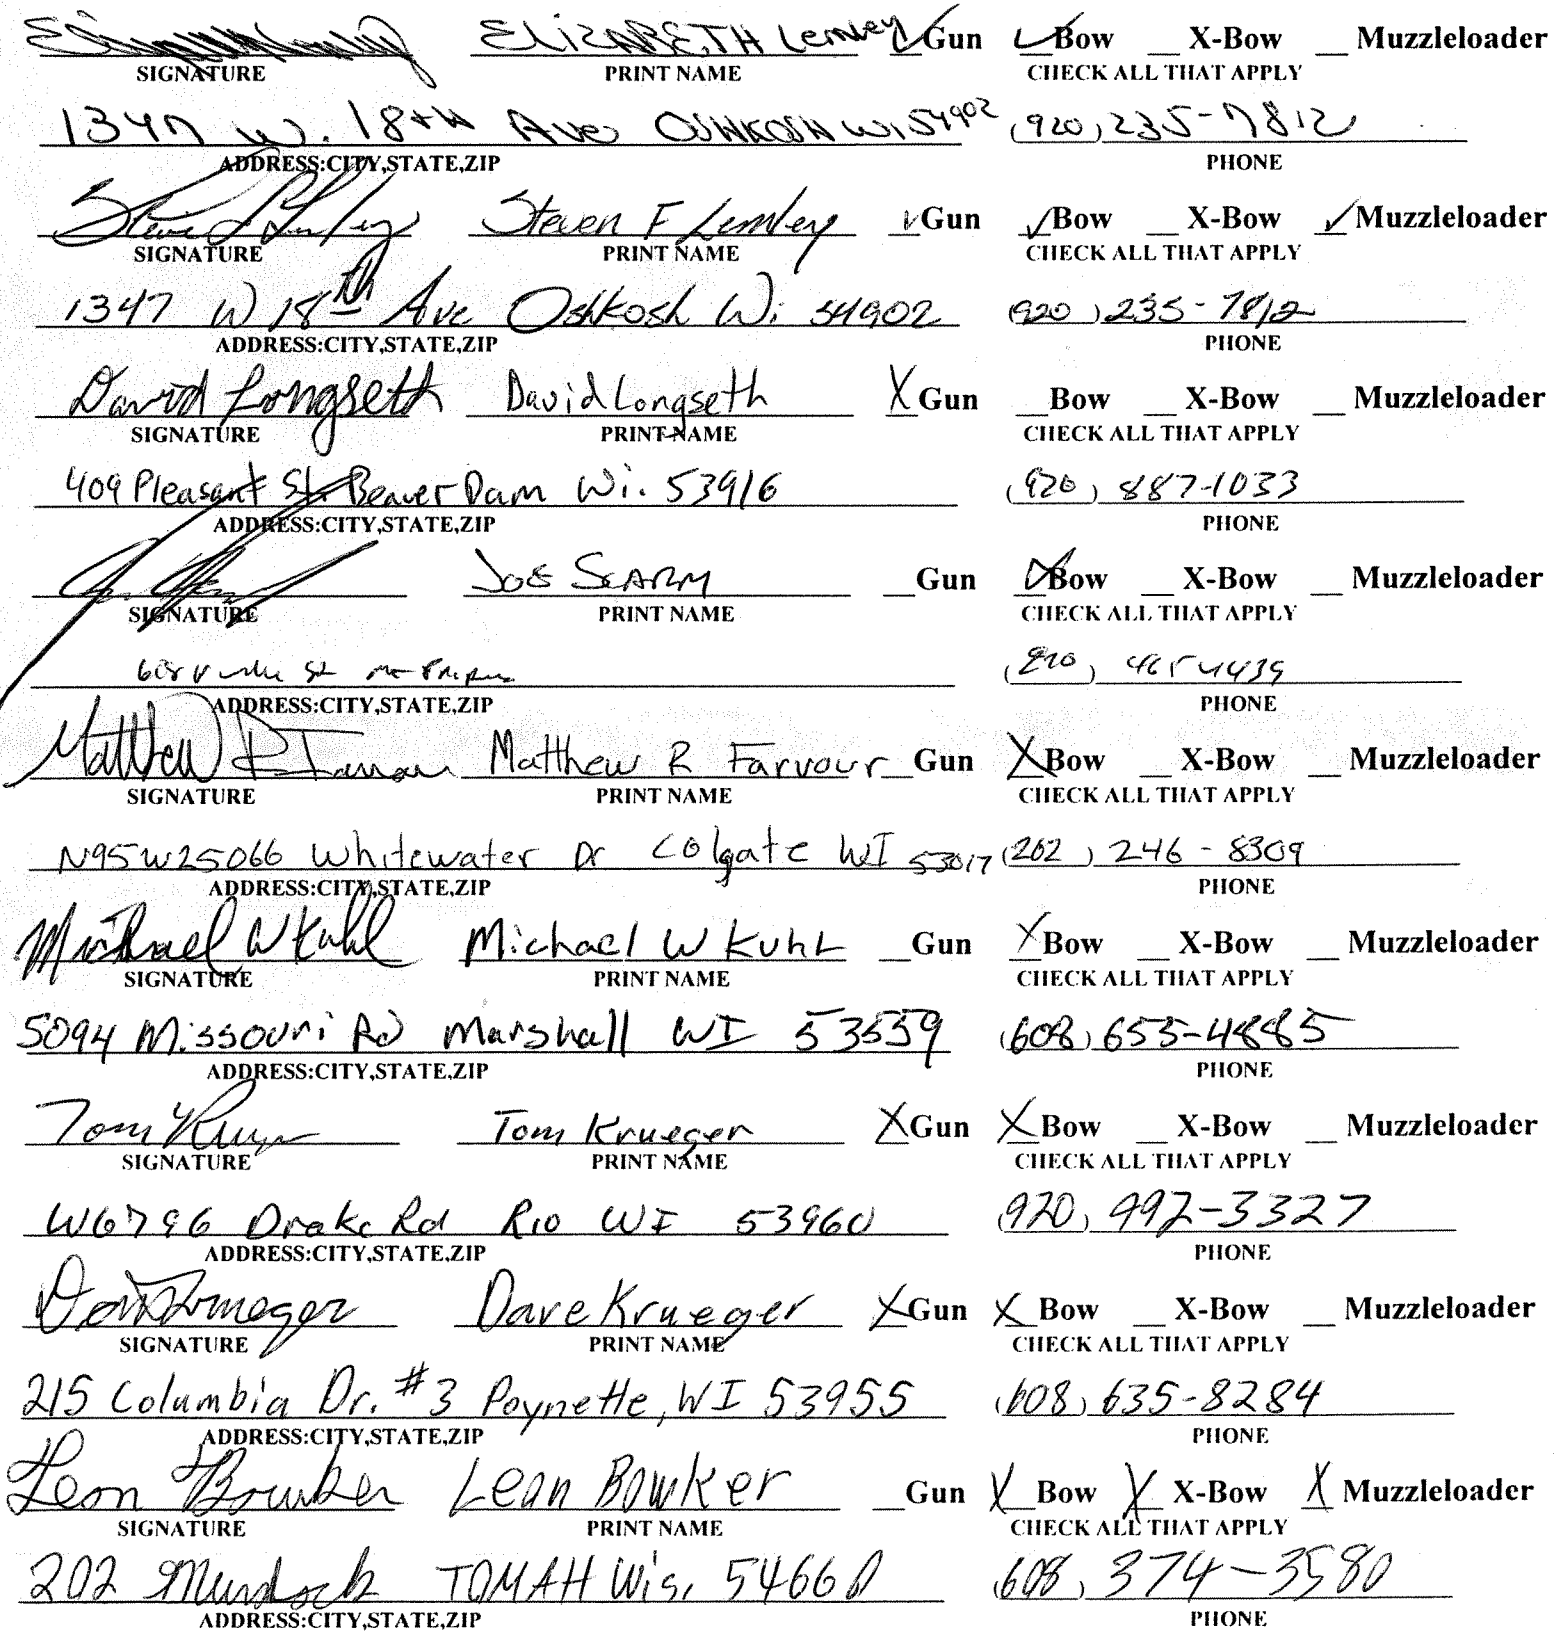 ELIZABETH Lemley ✓Gun ✓Bow __X-Bow __Muzzleloader
SIGNATURE PRINT NAME CHECK ALL THAT APPLY
1347 W. 18th Ave OSHKOSH WI 54902 (920) 235-7812
ADDRESS:CITY,STATE,ZIP PHONE
Steven F Lemley ✓Gun ✓Bow __X-Bow ✓Muzzleloader
SIGNATURE PRINT NAME CHECK ALL THAT APPLY
1347 W 18th Ave Oshkosh Wi 54902 (920) 235-7812
ADDRESS:CITY,STATE,ZIP PHONE
David Longseth David Longseth XGun __Bow __X-Bow __Muzzleloader
SIGNATURE PRINT NAME CHECK ALL THAT APPLY
409 Pleasant St. Beaver Dam Wi. 53916 (920) 887-1033
ADDRESS:CITY,STATE,ZIP PHONE
JOE SCARM __Gun XBow __X-Bow __Muzzleloader
SIGNATURE PRINT NAME CHECK ALL THAT APPLY
St (920)
ADDRESS:CITY,STATE,ZIP PHONE
Matthew R Matthew R Farvour __Gun XBow __X-Bow __Muzzleloader
SIGNATURE PRINT NAME CHECK ALL THAT APPLY
N95W25066 Whitewater Dr Colgate WI 53017 (262) 246-8309
ADDRESS:CITY,STATE,ZIP PHONE
Michael W Kuhl Michael W KuhL __Gun XBow __X-Bow __Muzzleloader
SIGNATURE PRINT NAME CHECK ALL THAT APPLY
5094 Missouri Rd Marshall WI 53559 (608) 655-4885
ADDRESS:CITY,STATE,ZIP PHONE
Tom Tom Krueger XGun XBow __X-Bow __Muzzleloader
SIGNATURE PRINT NAME CHECK ALL THAT APPLY
W6796 Drake Rd Rio WI 53960 (920) 992-3327
ADDRESS:CITY,STATE,ZIP PHONE
Dave Krueger Dave Krueger XGun XBow __X-Bow __Muzzleloader
SIGNATURE PRINT NAME CHECK ALL THAT APPLY
215 Columbia Dr. #3 Poynette, WI 53955 (608) 635-8284
ADDRESS:CITY,STATE,ZIP PHONE
Leon Bowker Leon Bowker __Gun XBow XX-Bow XMuzzleloader
SIGNATURE PRINT NAME CHECK ALL THAT APPLY
202 Murdock TOMAH Wis. 54660 (608) 374-3580
ADDRESS:CITY,STATE,ZIP PHONE